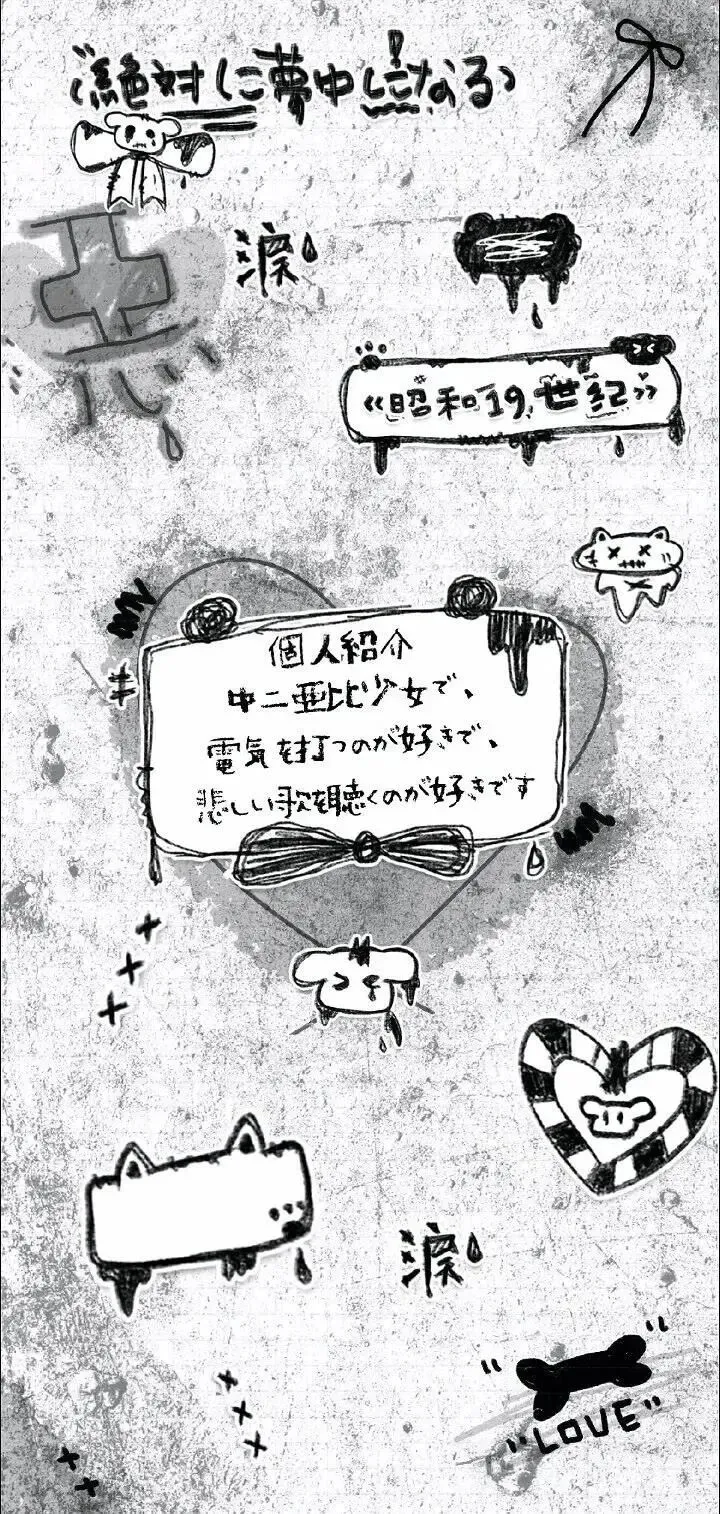 絶対に夢中になる!
涙
亜い
《昭和19世紀》
個人紹介
中二亜比少女で、
電気を打つのが好きで、
悲しい歌を聴くのが好きです
涙
"LOVE"